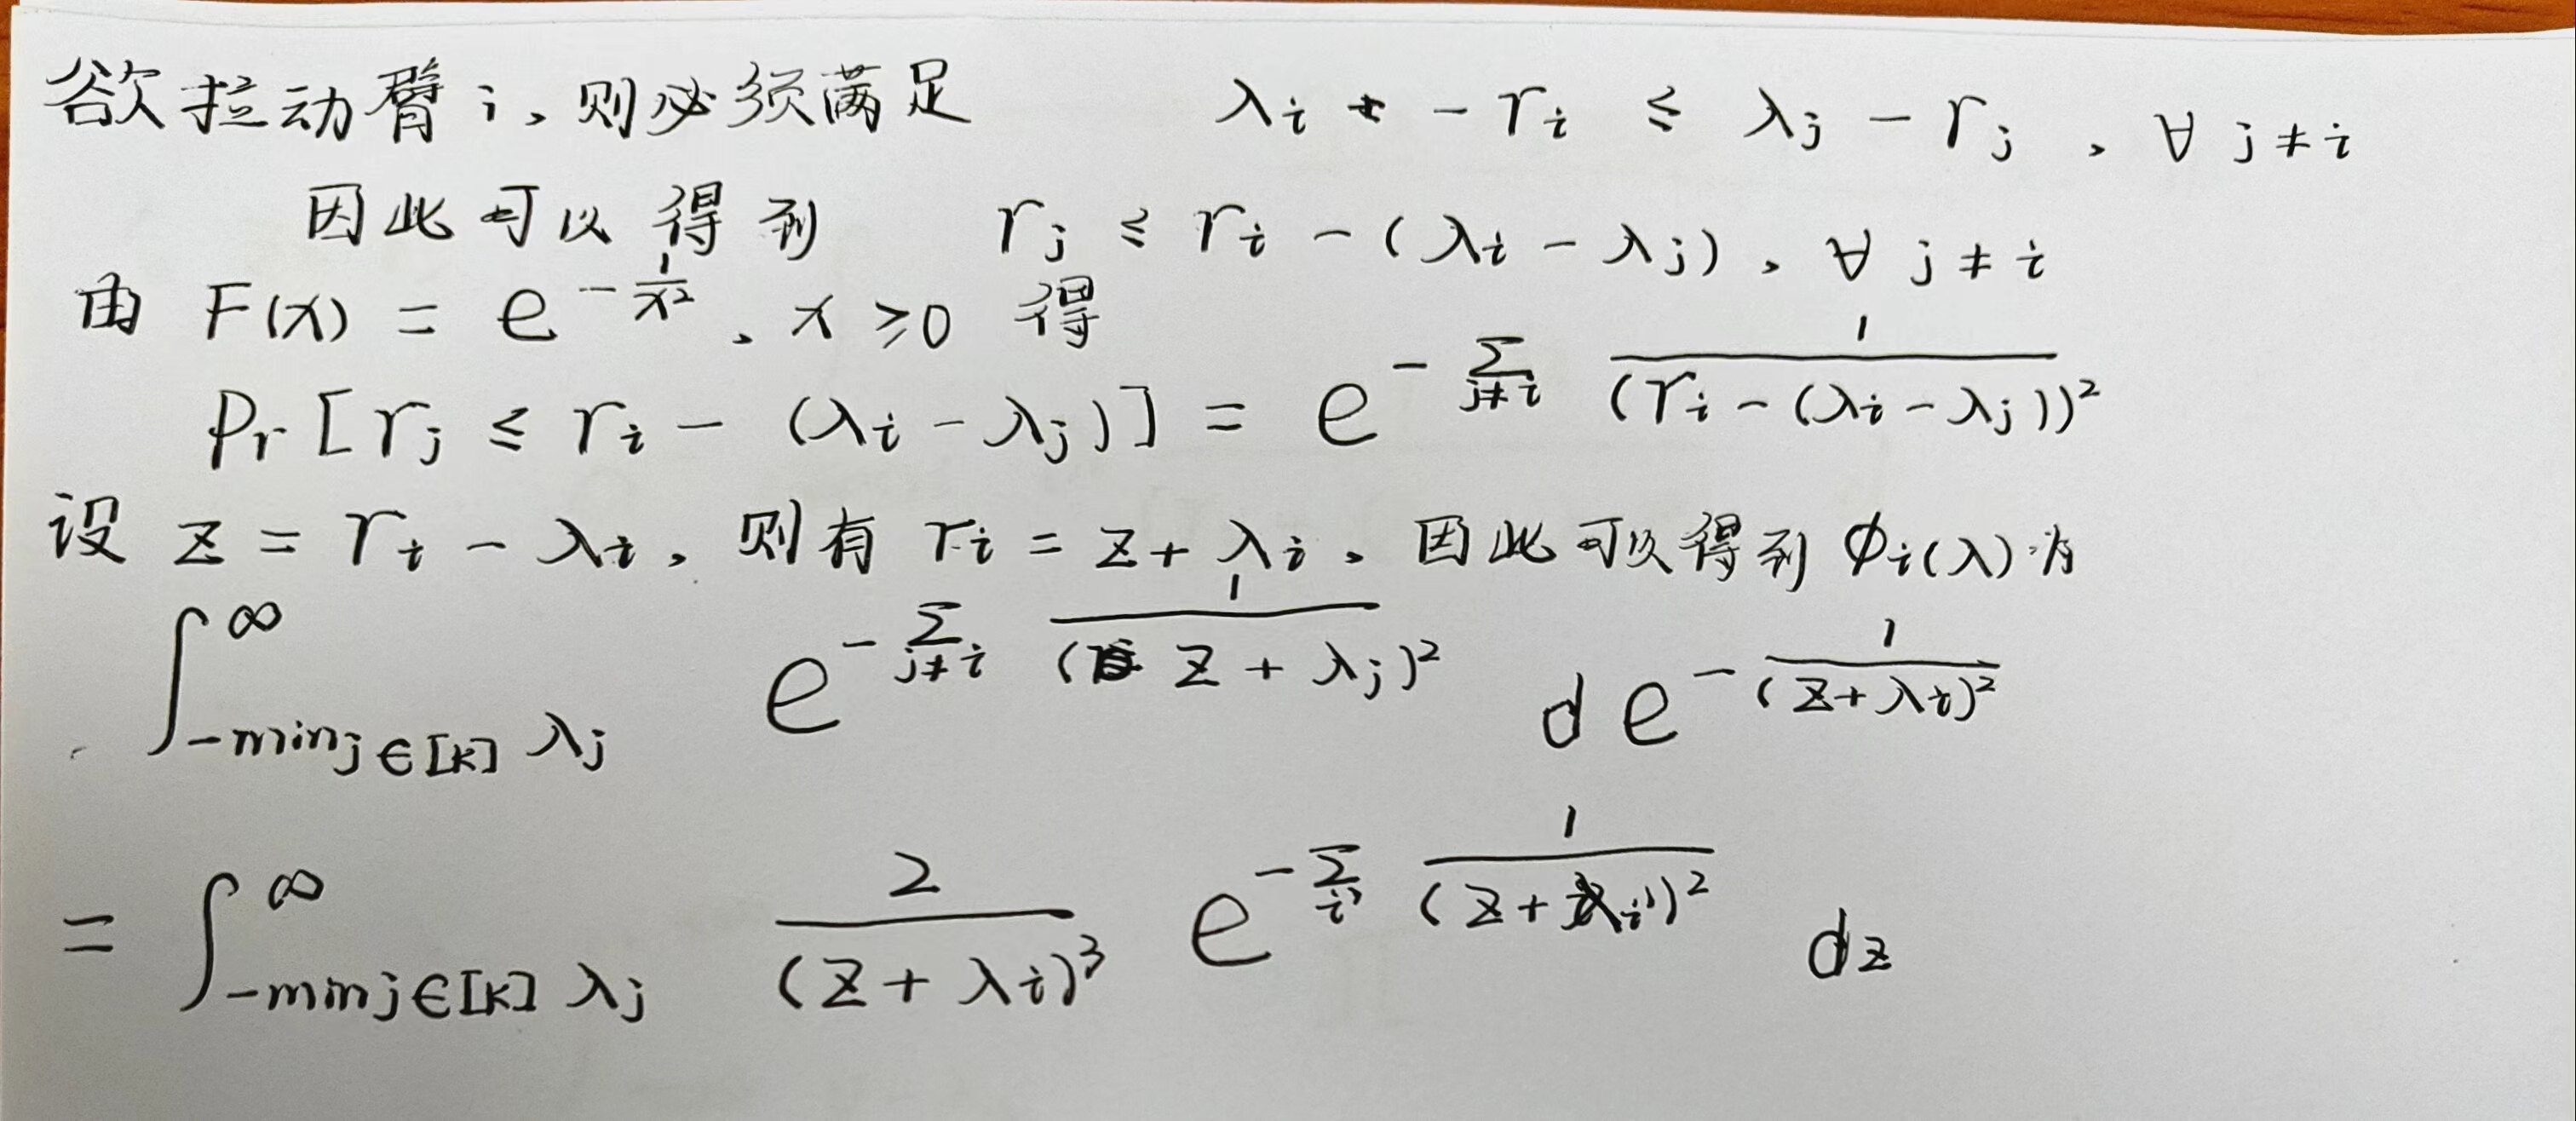 欲拉动臂 i, 则必须满足 λ_i - r_i ≤ λ_j - r_j, ∀ j ≠ i
因此可以得到 r_j ≤ r_i - (λ_i - λ_j), ∀ j ≠ i
由 F(x) = e^{-\frac{1}{x^2}}, x ≥ 0 得
Pr[r_j ≤ r_i - (λ_i - λ_j)] = e^{-\sum_{j≠i} \frac{1}{(r_i - (λ_i - λ_j))^2}}
设 z = r_i - λ_i, 则有 r_i = z + λ_i, 因此可以得到 φ_i(λ) 为
\int_{-min_{j∈[K]} λ_j}^{∞} e^{-\sum_{j≠i} \frac{1}{(z + λ_j)^2}} d e^{-\frac{1}{(z + λ_i)^2}}
= \int_{-min_{j∈[K]} λ_j}^{∞} \frac{2}{(z + λ_i)^3} e^{-\sum_{i'} \frac{1}{(z + λ_{i'})^2}} dz